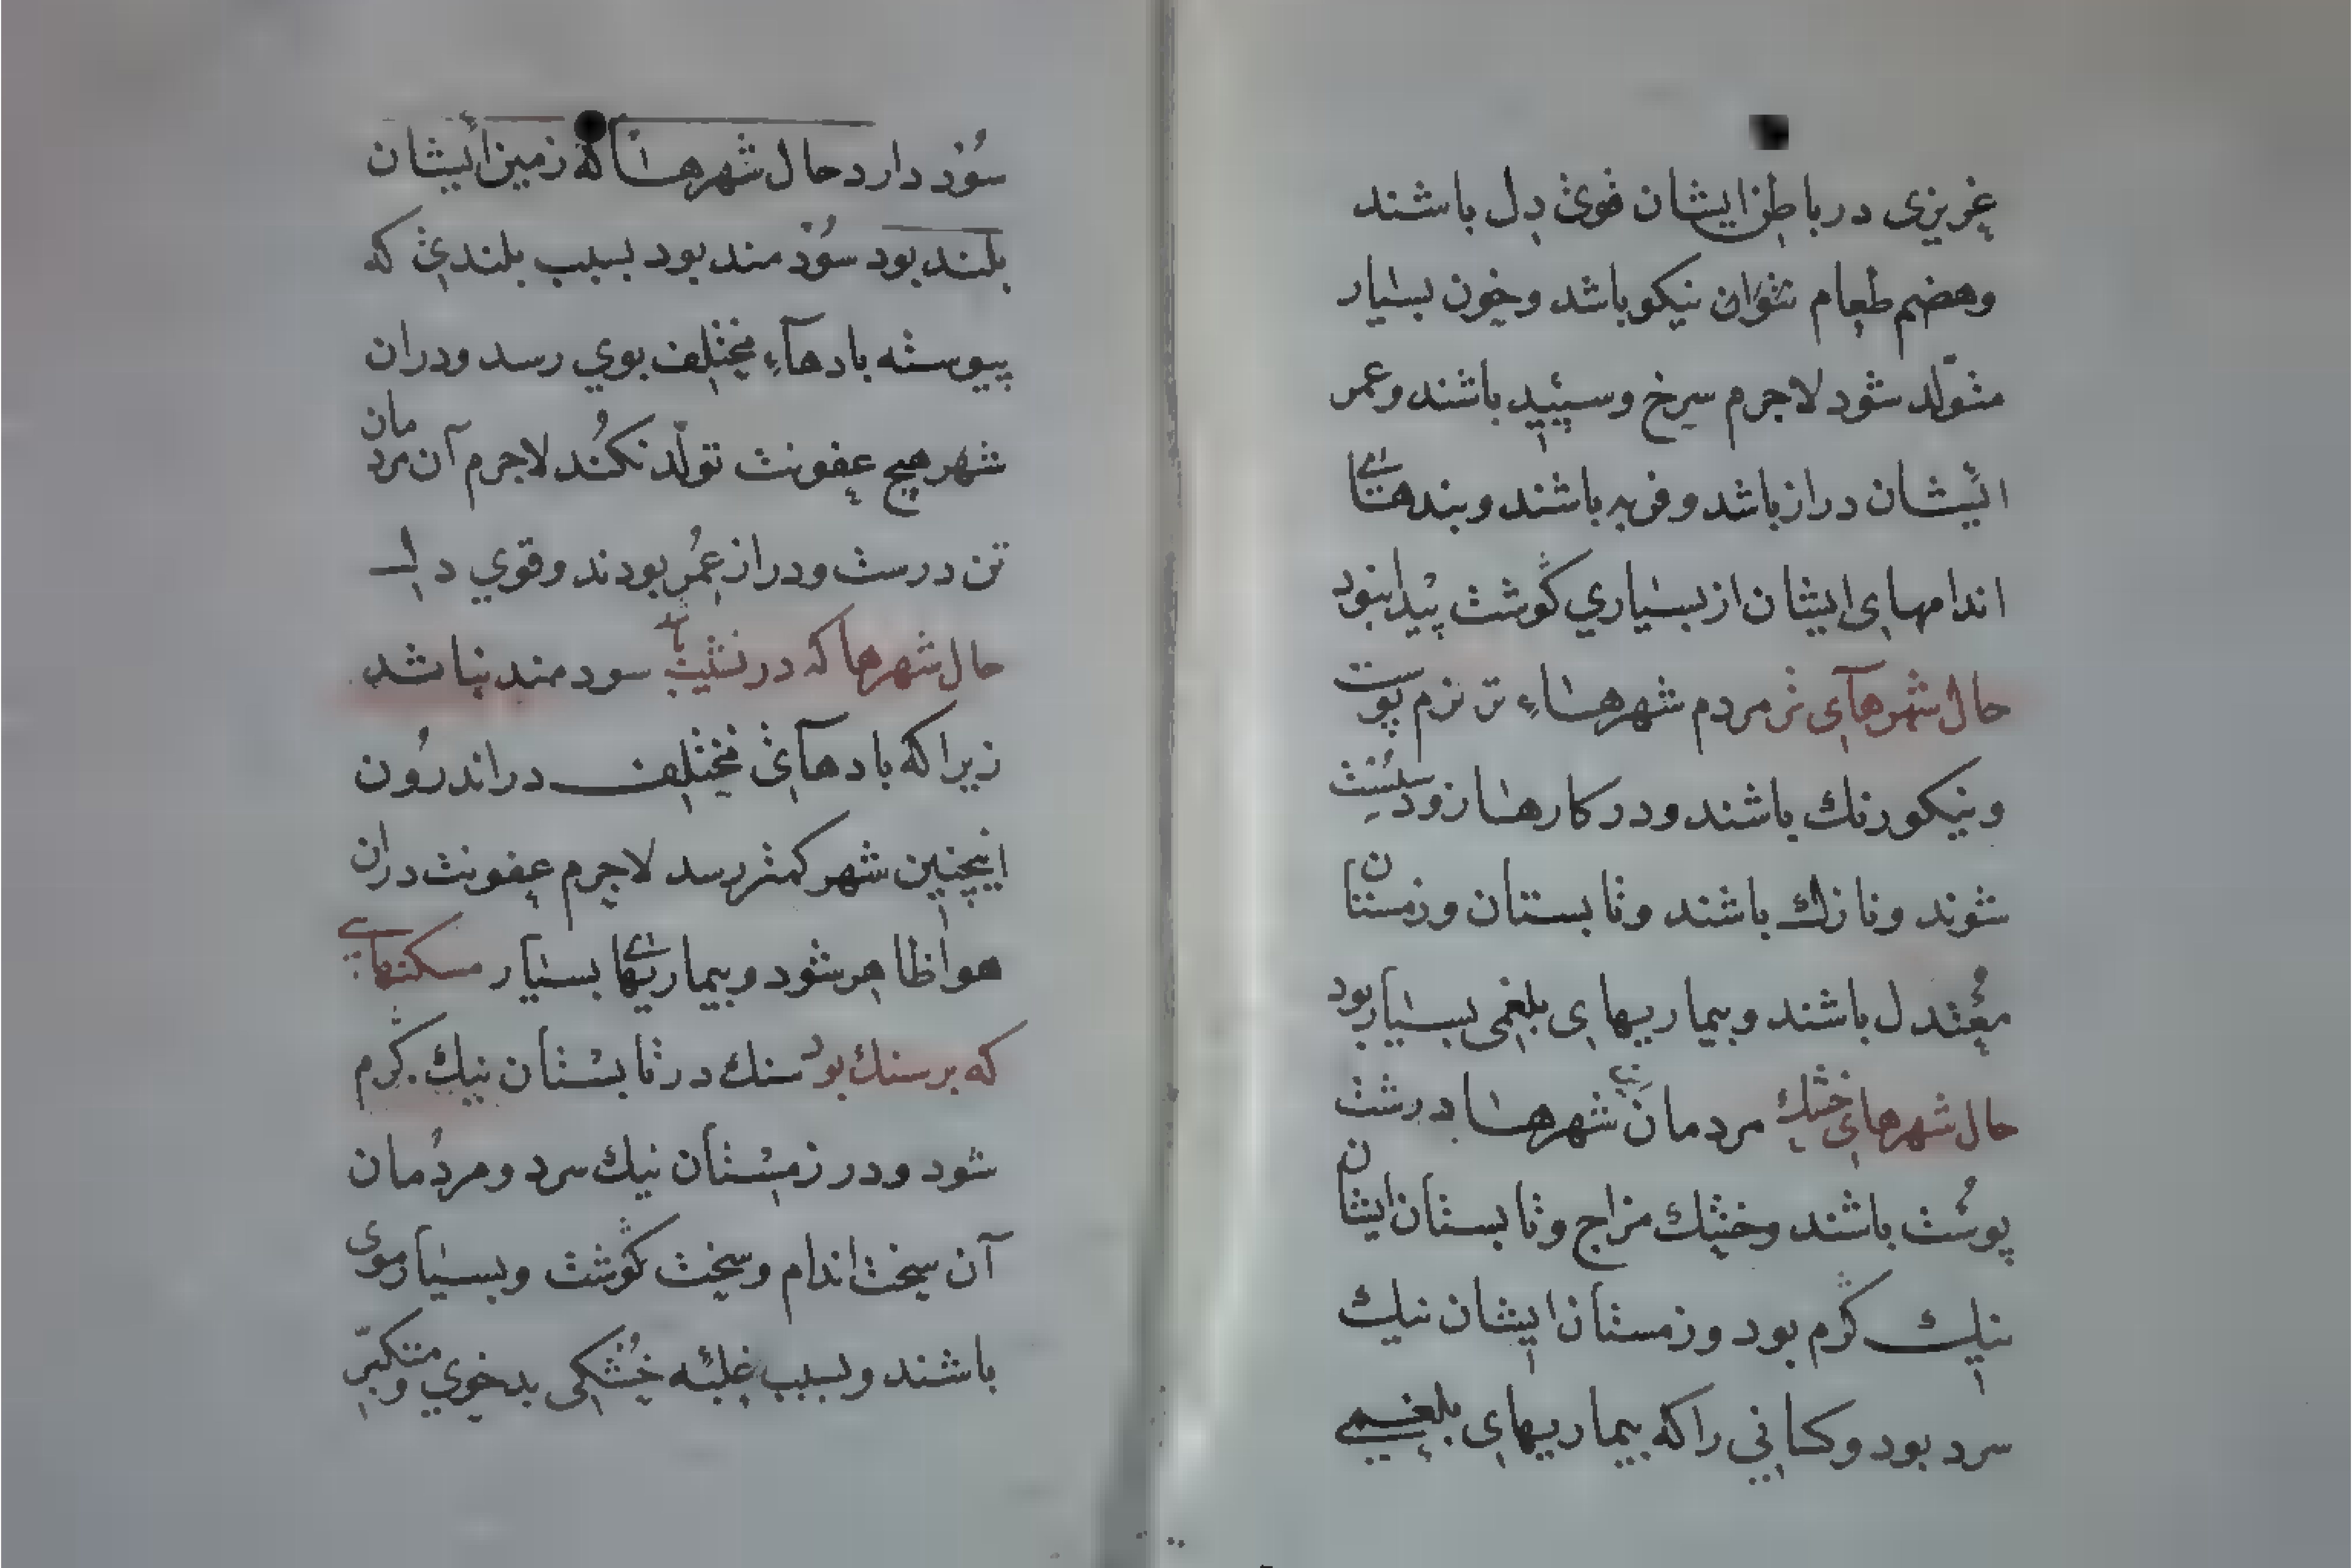 غریزی در باطن ایشان قوی دل باشند
وهضم طعام شوان نیکو باشد وخون بسیار
متولّد شود لاجرم سرخ وسپید باشند وعمر
ایشان دراز باشد وفربه باشند وبندهای
اندامهای ایشان از بسیاري گوشت پیدا نبود
حال شهرهآی تر مردم شهرهاء تر نرم پوست
ونیکورنك باشند ودر کارها زود سست
شوند ونازك باشند وتابستان وزمستان
معتدل باشند وبیماریهای بلغمی بسیار بود
حال شهرهای خشك مردمان شهرها درشت
پوست باشند وخشك مزاج وتابستان ایشان
نیك گرم بود وزمستان ایشان نیك
سرد بود وکسانی را که بیماریهای بلغمی
سُود دارد حال شهرها که زمین ایشان
بلند بود سُود مند بود بسبب بلندي که
پیوسته بادهآء مختلف بوي رسد ودران
شهر هیچ عفونت تولّد نکُند لاجرم آن مردمان
تن درست ودراز عمُر بودند وقوي دل
حال شهرها که در نشیب باشد سود مند نباشد
زیرا که بادهآئ مختلف در اندرُون
اینچنین شهر کمتر رسد لاجرم عفونت دران
هوا ظاهر شود وبیماریهای بسیار مسکنهای
که بر سنك بود سنك در تابستان نیك گرم
شود ودر زمستان نیك سرد ومردُمان
آن سخت اندام وسخت گوشت وبسیار موی
باشند وبسبب غلبه خُشکی بدخوي ومتکبّر